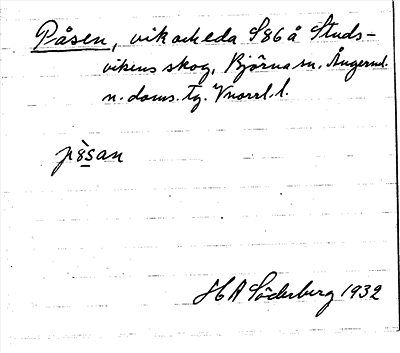 Påsen, vik o. ek eda S86 å Studs-
vikens skog, Björna sn. Ångerml.
n. doms. tg. Vnorrl. l.
på̀san
H A Söderberg 1932